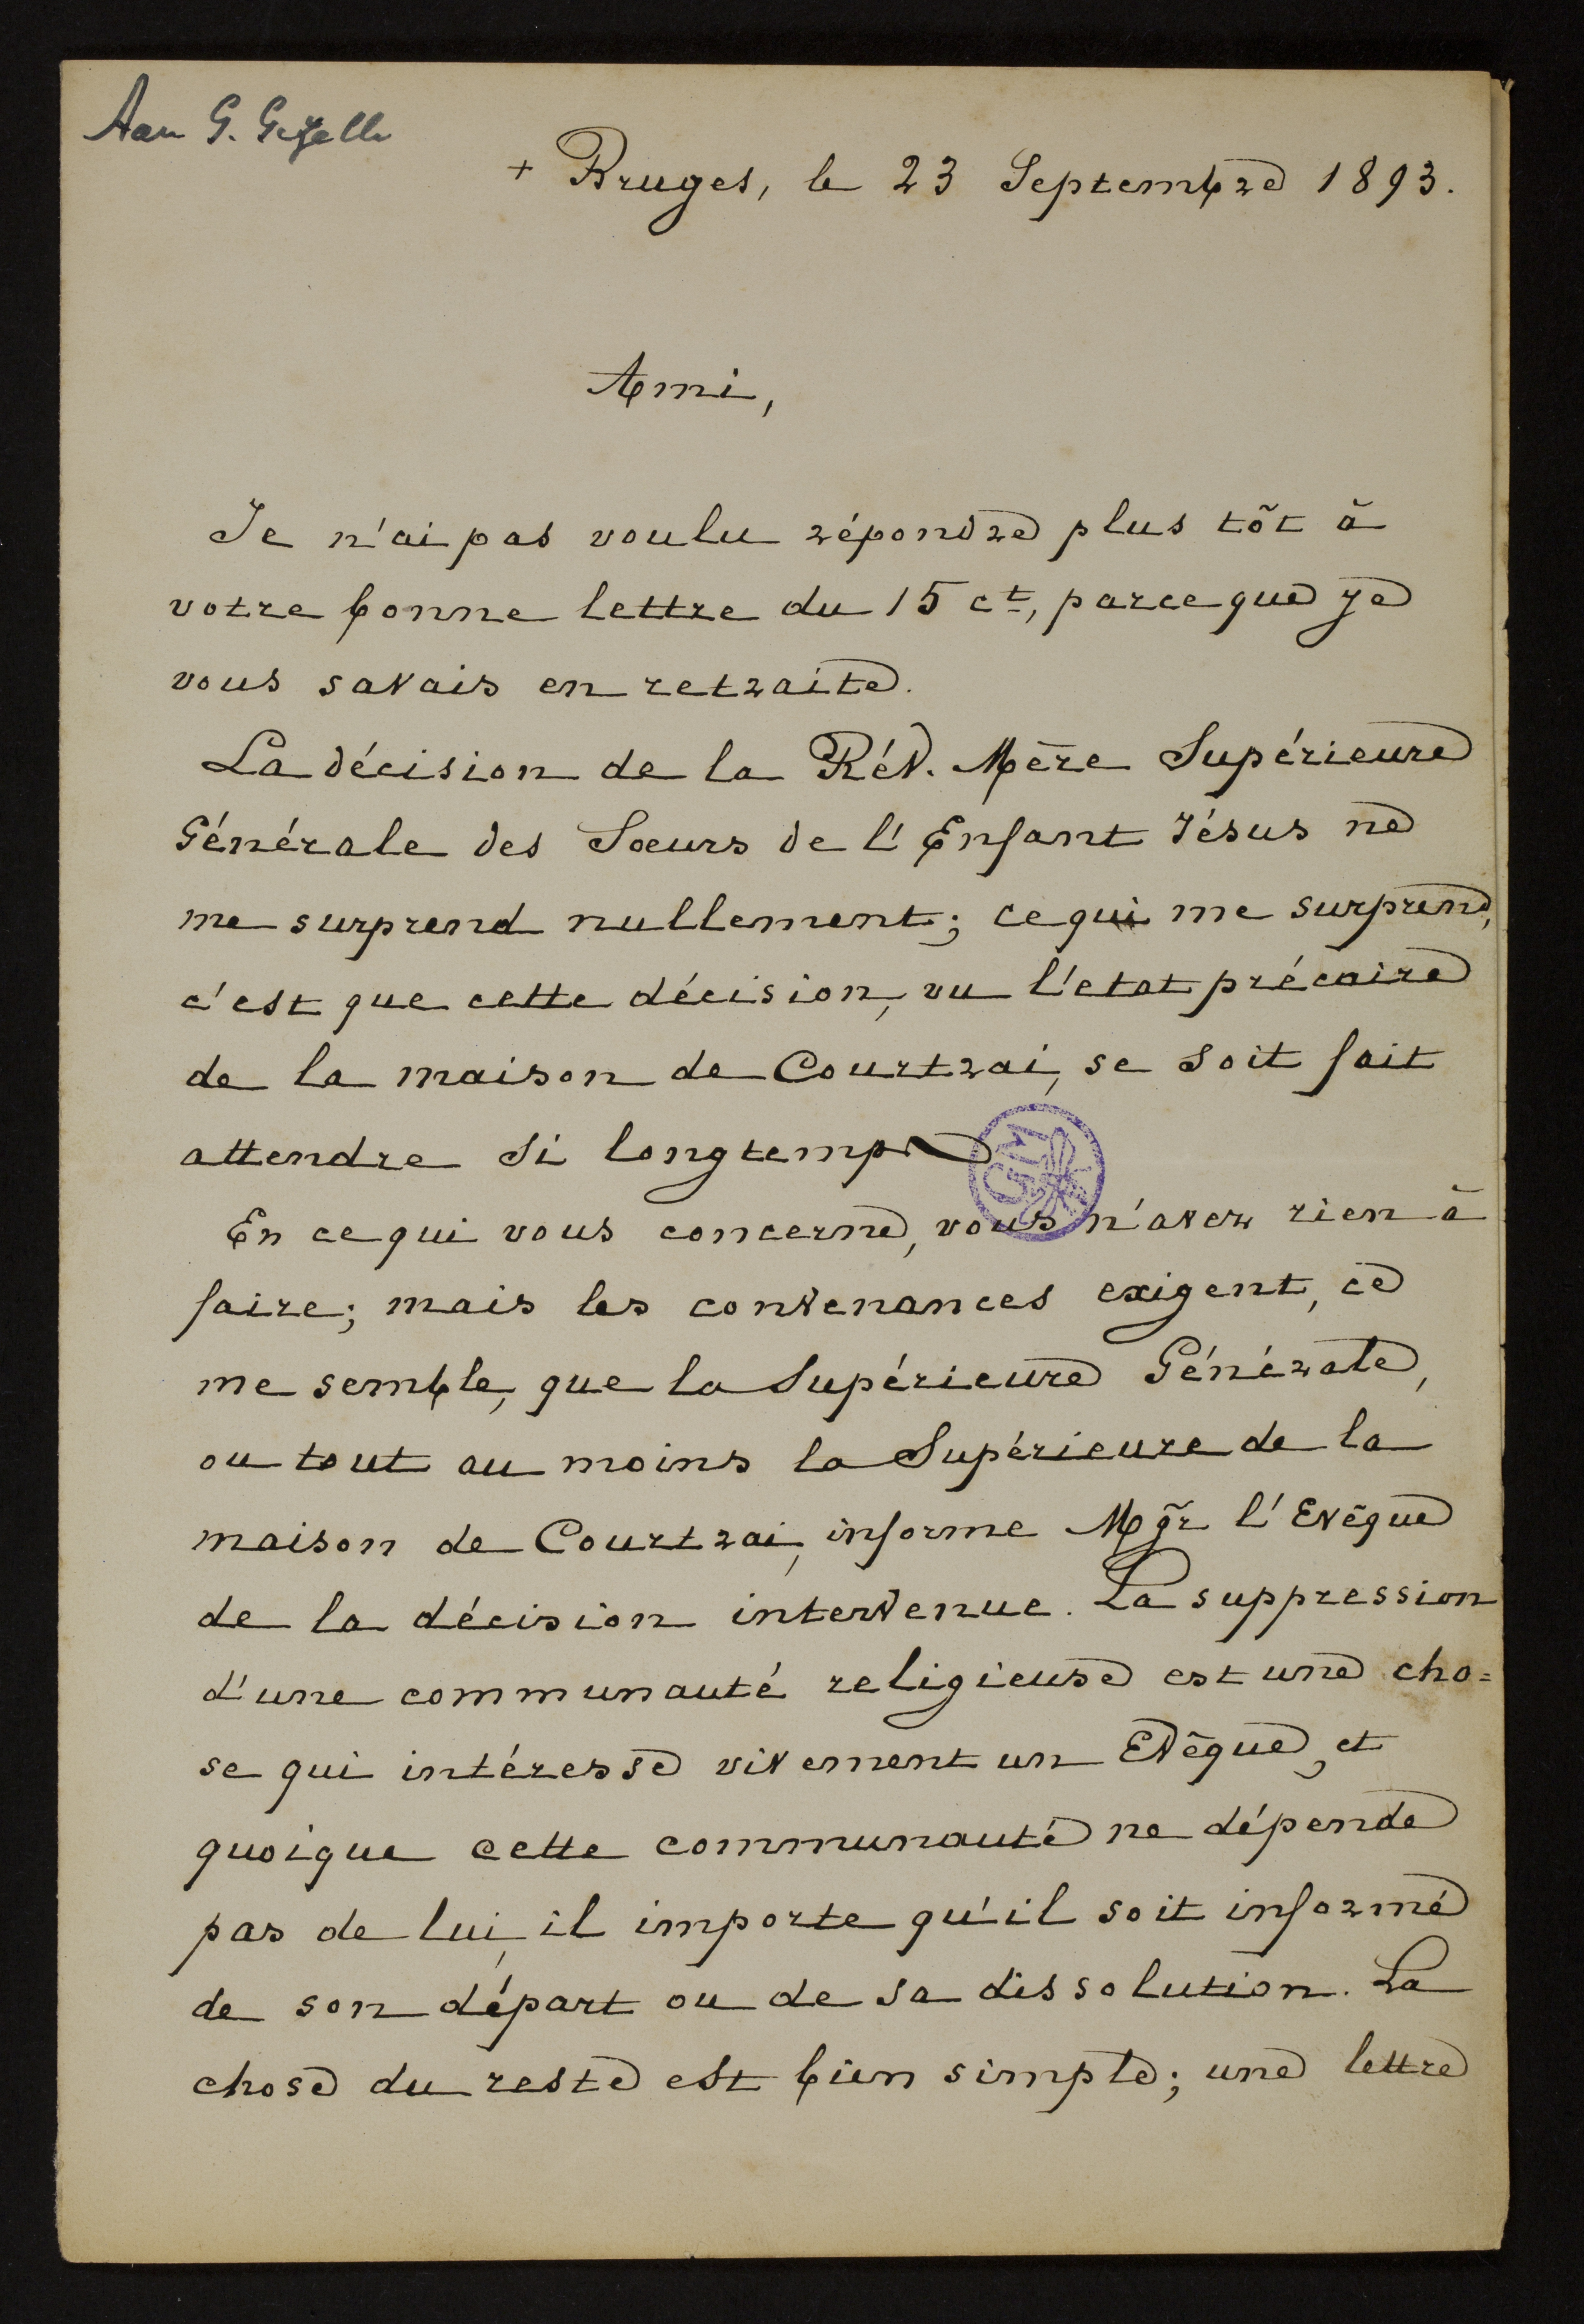 Aan G. Gezelle
+ Bruges, le 23 Septembre 1893.
Ami,
Je n'ai pas voulu répondre plus tôt à
votre bonne lettre du 15 ct, parceque je
vous savais en retraite.
La décision de la Rév. Mère Supérieure
Générale des Sœurs de l'Enfant Jésus ne
me surprend nullement; ce qui me surprend,
c'est que cette décision, vu l'etat précaire
de la maison de Courtrai, se soit fait
attendre si longtemps
GM
En ce qui vous concerne, vous n'avez rien à
faire; mais les convenances exigent, ce
me semble, que la Supérieure Générale,
ou tout au moins la Supérieure de la
maison de Courtrai, informe Mgr l'Evêque
de la décision intervenue. La suppression
d'une communauté religieuse est une cho=
se qui intéresse vivement un Evêque, et
quoique cette communauté ne dépende
pas de lui, il importe qu'il soit informé
de son départ ou de sa dissolution. La
chose du reste est bien simple; une lettre